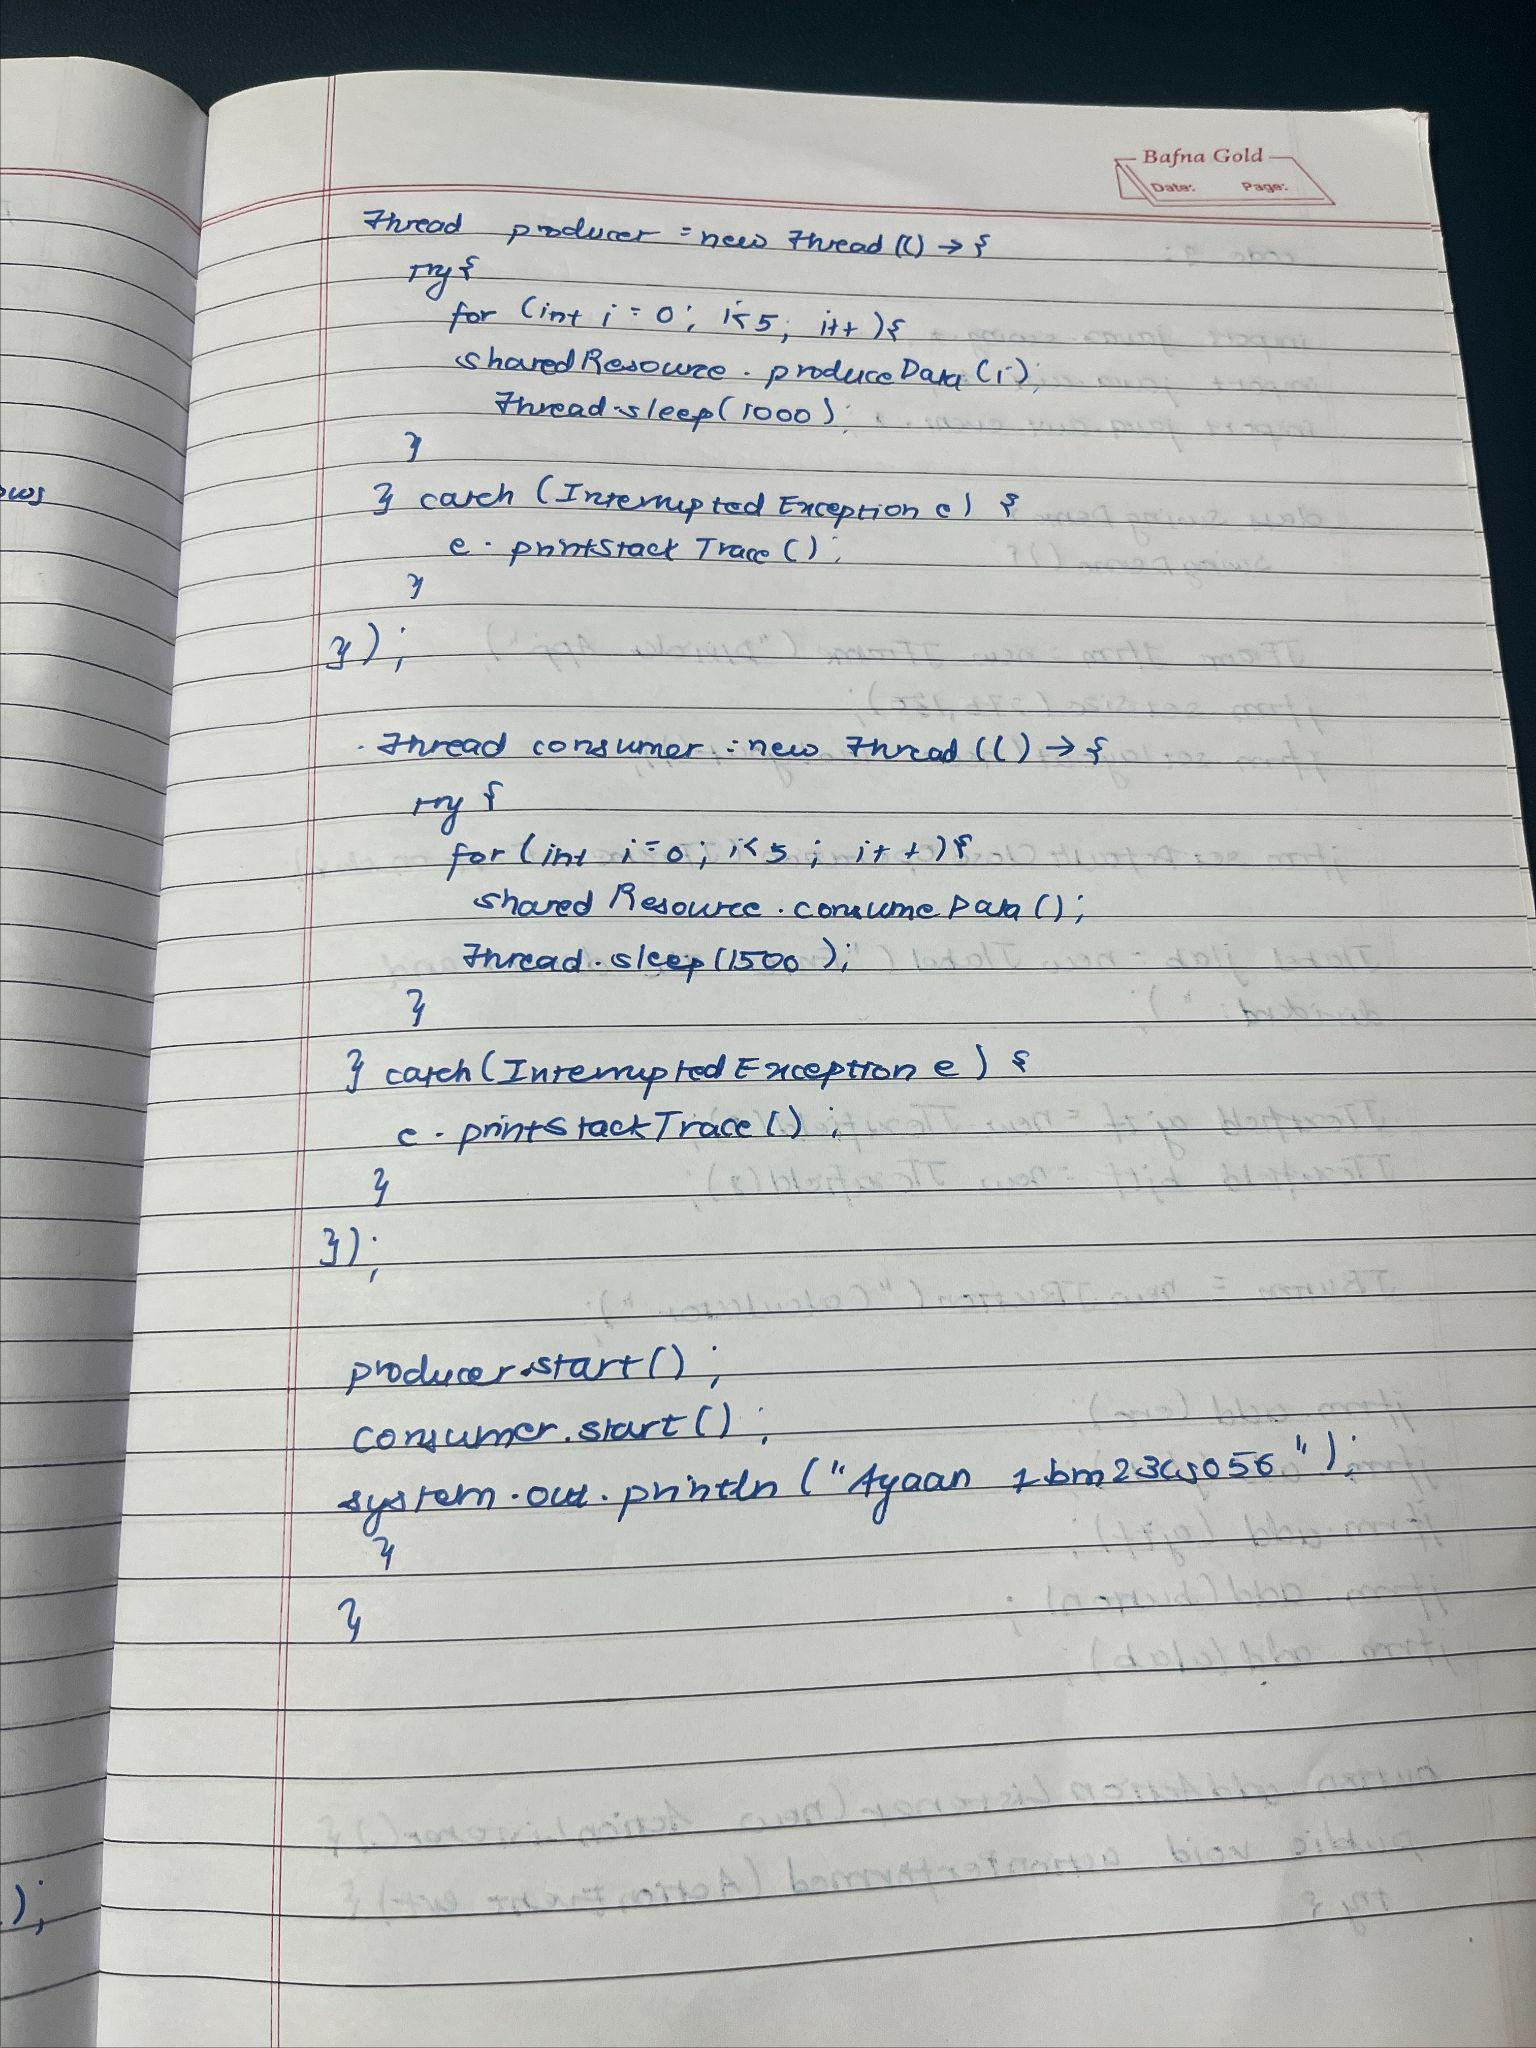 Bafna Gold
Date: Page:
Thread producer = new Thread (() → {
try {
for (int i = 0; i<5; i++ ){
sharedResource . produceData (i);
Thread.sleep(1000);
}
} catch (Interrupted Exception e) {
e . printStack Trace ();
}
});
Thread consumer = new Thread (() → {
try {
for (int i=0; i<5 ; i++){
shared Resource . consume Data ();
Thread.sleep (1500);
}
} catch (Interrupted Exception e) {
e . printStackTrace () ;
}
});
producer.start() ;
consumer.start() ;
system.out.println ("Ayaan 1bm23cs056");
}
}
ows
);